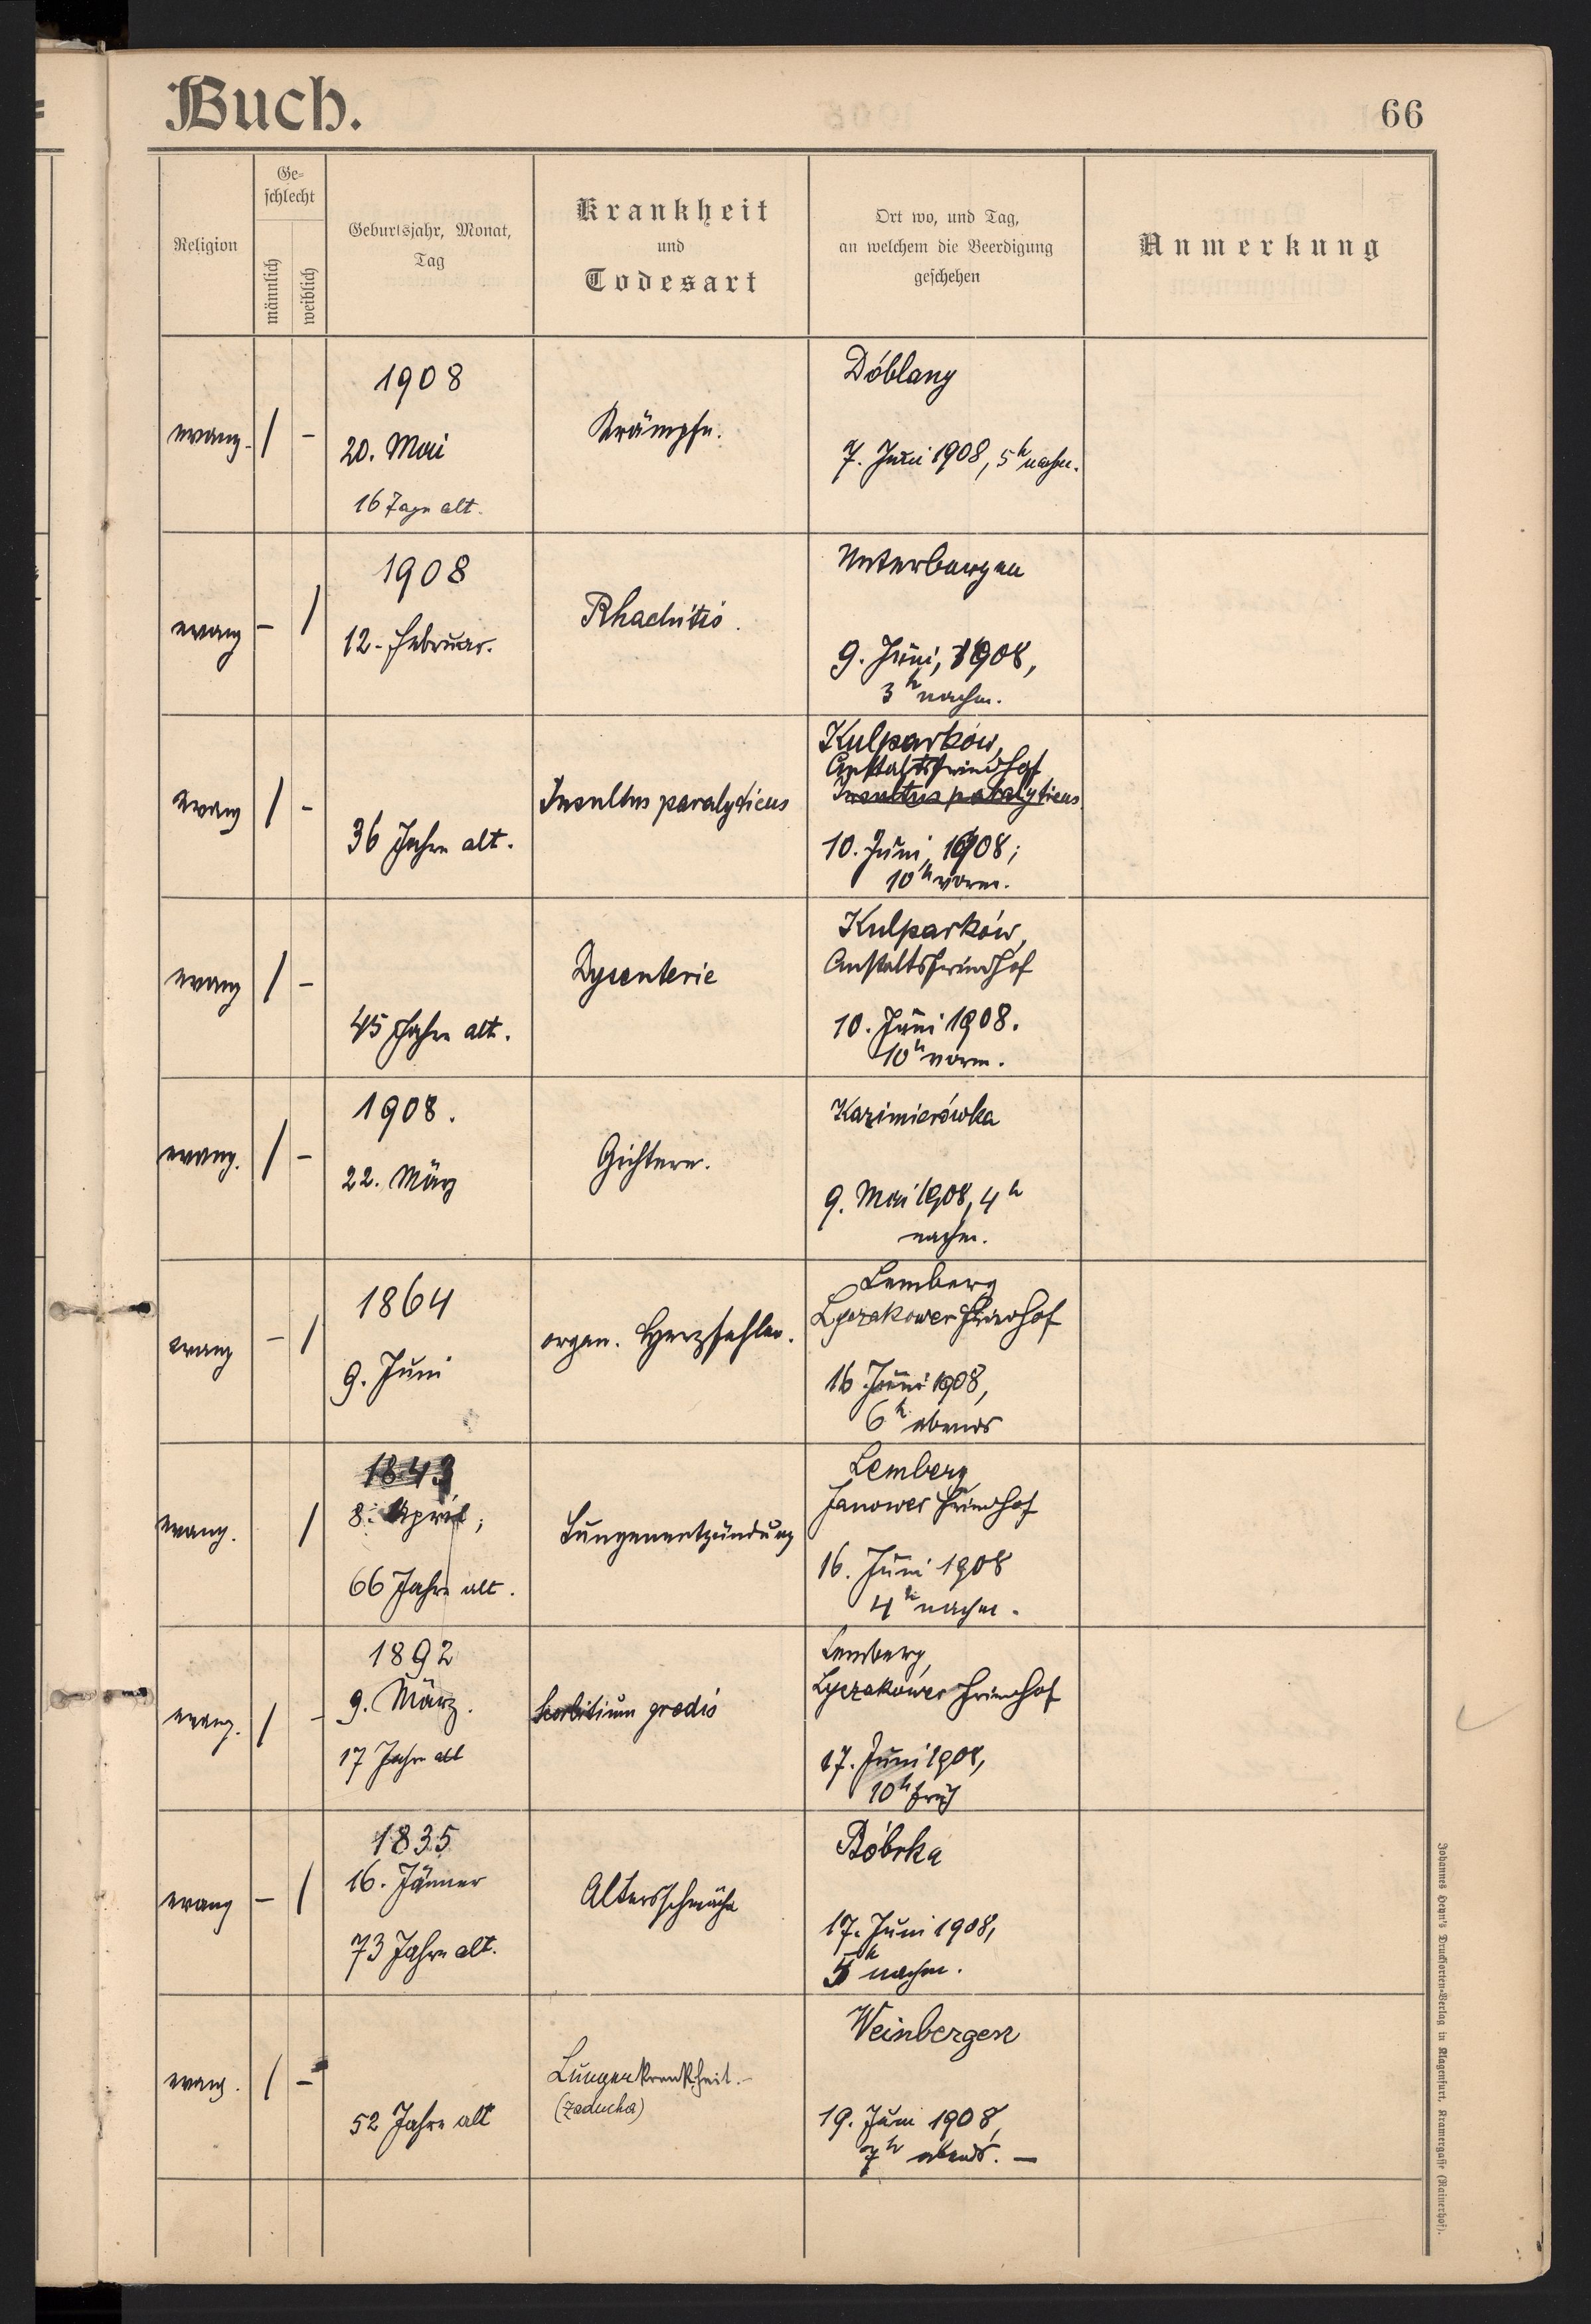 Buch.
66
Religion
Ge-
schlecht
männlich
weiblich
Geburtsjahr, Monat,
Tag
Krankheit
und
Todesart
Ort wo, und Tag,
an welchem die Beerdigung
geschehen
Anmerkung
evang. / - 1908
20. Mai
16 Tage alt.
Krämpfe.
Döblang
7. Juni 1908, 5h nachm.
evang - / 1908
12. Februar.
Rhachitis.
Unterbergen
9. Juni, 1908,
3h nachm.
evang / -
36 Jahre alt.
Insultus paralyticus
Kulparków,
Anstaltsfriedhof
Insultus paralyticus
10. Juni, 1908;
10h vorm.
evang / -
45 Jahre alt.
Dysenterie
Kulparków,
Anstaltsfriedhof
10. Juni 1908.
10h vorm.
evang. / - 1908.
22. März
Gichtern.
Kazimierówka
9. Mai 1908, 4h
nachm.
evang - / 1864
9. Juni
organ. Herzfehler.
Lemberg
Lyczakower Friedhof
16 Juni 1908,
6h abends
evang. / 1843
8. April;
66 Jahre alt.
Lungenentzündung
Lemberg,
Janower Friedhof
16. Juni 1908
4h nachm.
evang. / - 1892
9. März.
17 Jahre alt
gradis
Lemberg,
Lyczakower Friedhof
17. Juni 1908,
10h früh
evang - / 1835
16. Jänner
73 Jahre alt.
Altersschwäche
Bóbrka
17. Juni 1908,
5h nachm.
evang. / -
52 Jahre alt
Lungenkrankheit.-
(zaducha)
Weinbergen
19. Juni 1908,
7h abends. —
Johannes Heyn's Drucksorten-Verlag in Klagenfurt, Kramergasse (Rainerhof).